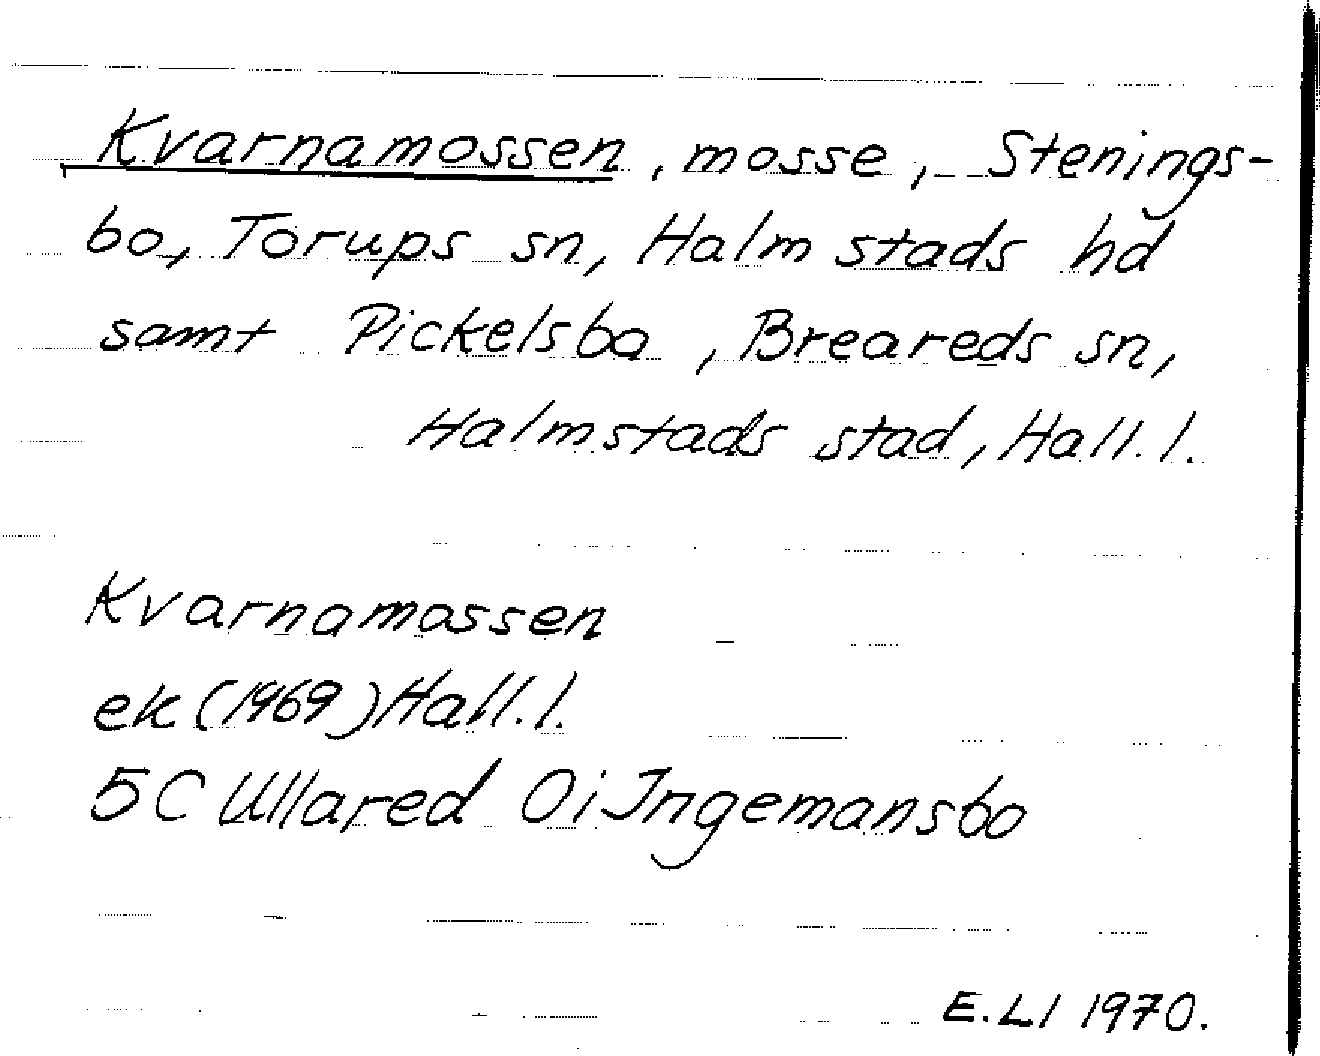 Kvarnamossen, mosse, Stenings-
bo, Torups sn, Halmstads hd
samt Pickelsbo, Breareds sn,
Halmstads stad, Hall.l.
Kvarnamossen
ek (1969) Hall.l.
5C Ullared 0i Ingemansbo
E.LI 1970.